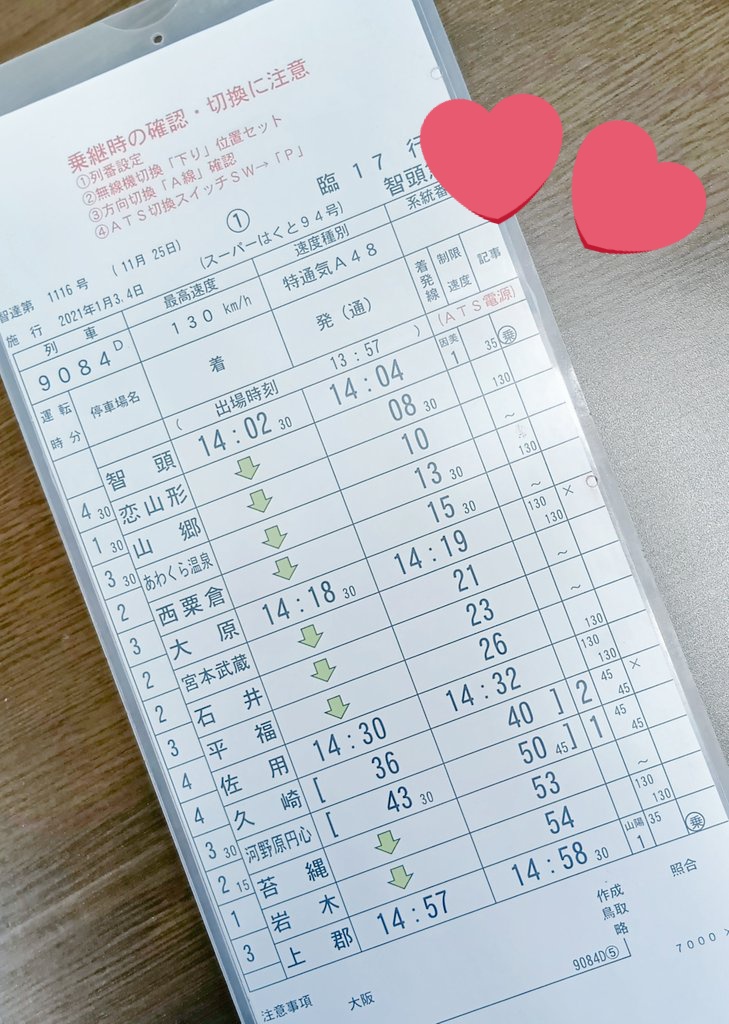 乗継時の確認・切換に注意
①列番設定
②無線機切換「下り」位置セット
③方向切換「A線」確認
④ATS切換スイッチSW→「P」
①
臨 17 行
智達第 1116 号 (11月 25日) (スーパーはくと94号) 智頭
施行 2021年1月3,4日
列車 最高速度 速度種別 系統番
9084D 130 km/h 特通気A48
着発線 制限速度 記事
運転時分 停車場名 着 発 (通)
( 出場時刻 13:57 ) (ATS電源)
智頭 14:02 30 14:04 因美 1 35 乗
4 30 恋山形 08 30 130
1 30 山郷 10 ~
3 30 あわくら温泉 13 30 130
2 西粟倉 15 30 ~
3 大原 14:18 30 14:19 130 130 ×
2 宮本武蔵 21 ~
2 石井 23 ~
3 平福 26 130
4 佐用 14:30 14:32 130 130
4 久崎 [ 36 40 ] 2 45 45 ×
3 30 河野原円心 [ 43 30 50 45 ] 1 45 45
2 15 苔縄 53 ~
1 岩木 54 130 130
3 上郡 14:57 14:58 30 山陽 1 35 乗
作成 鳥取 略
照合
9084D⑤
7000
注意事項 大阪